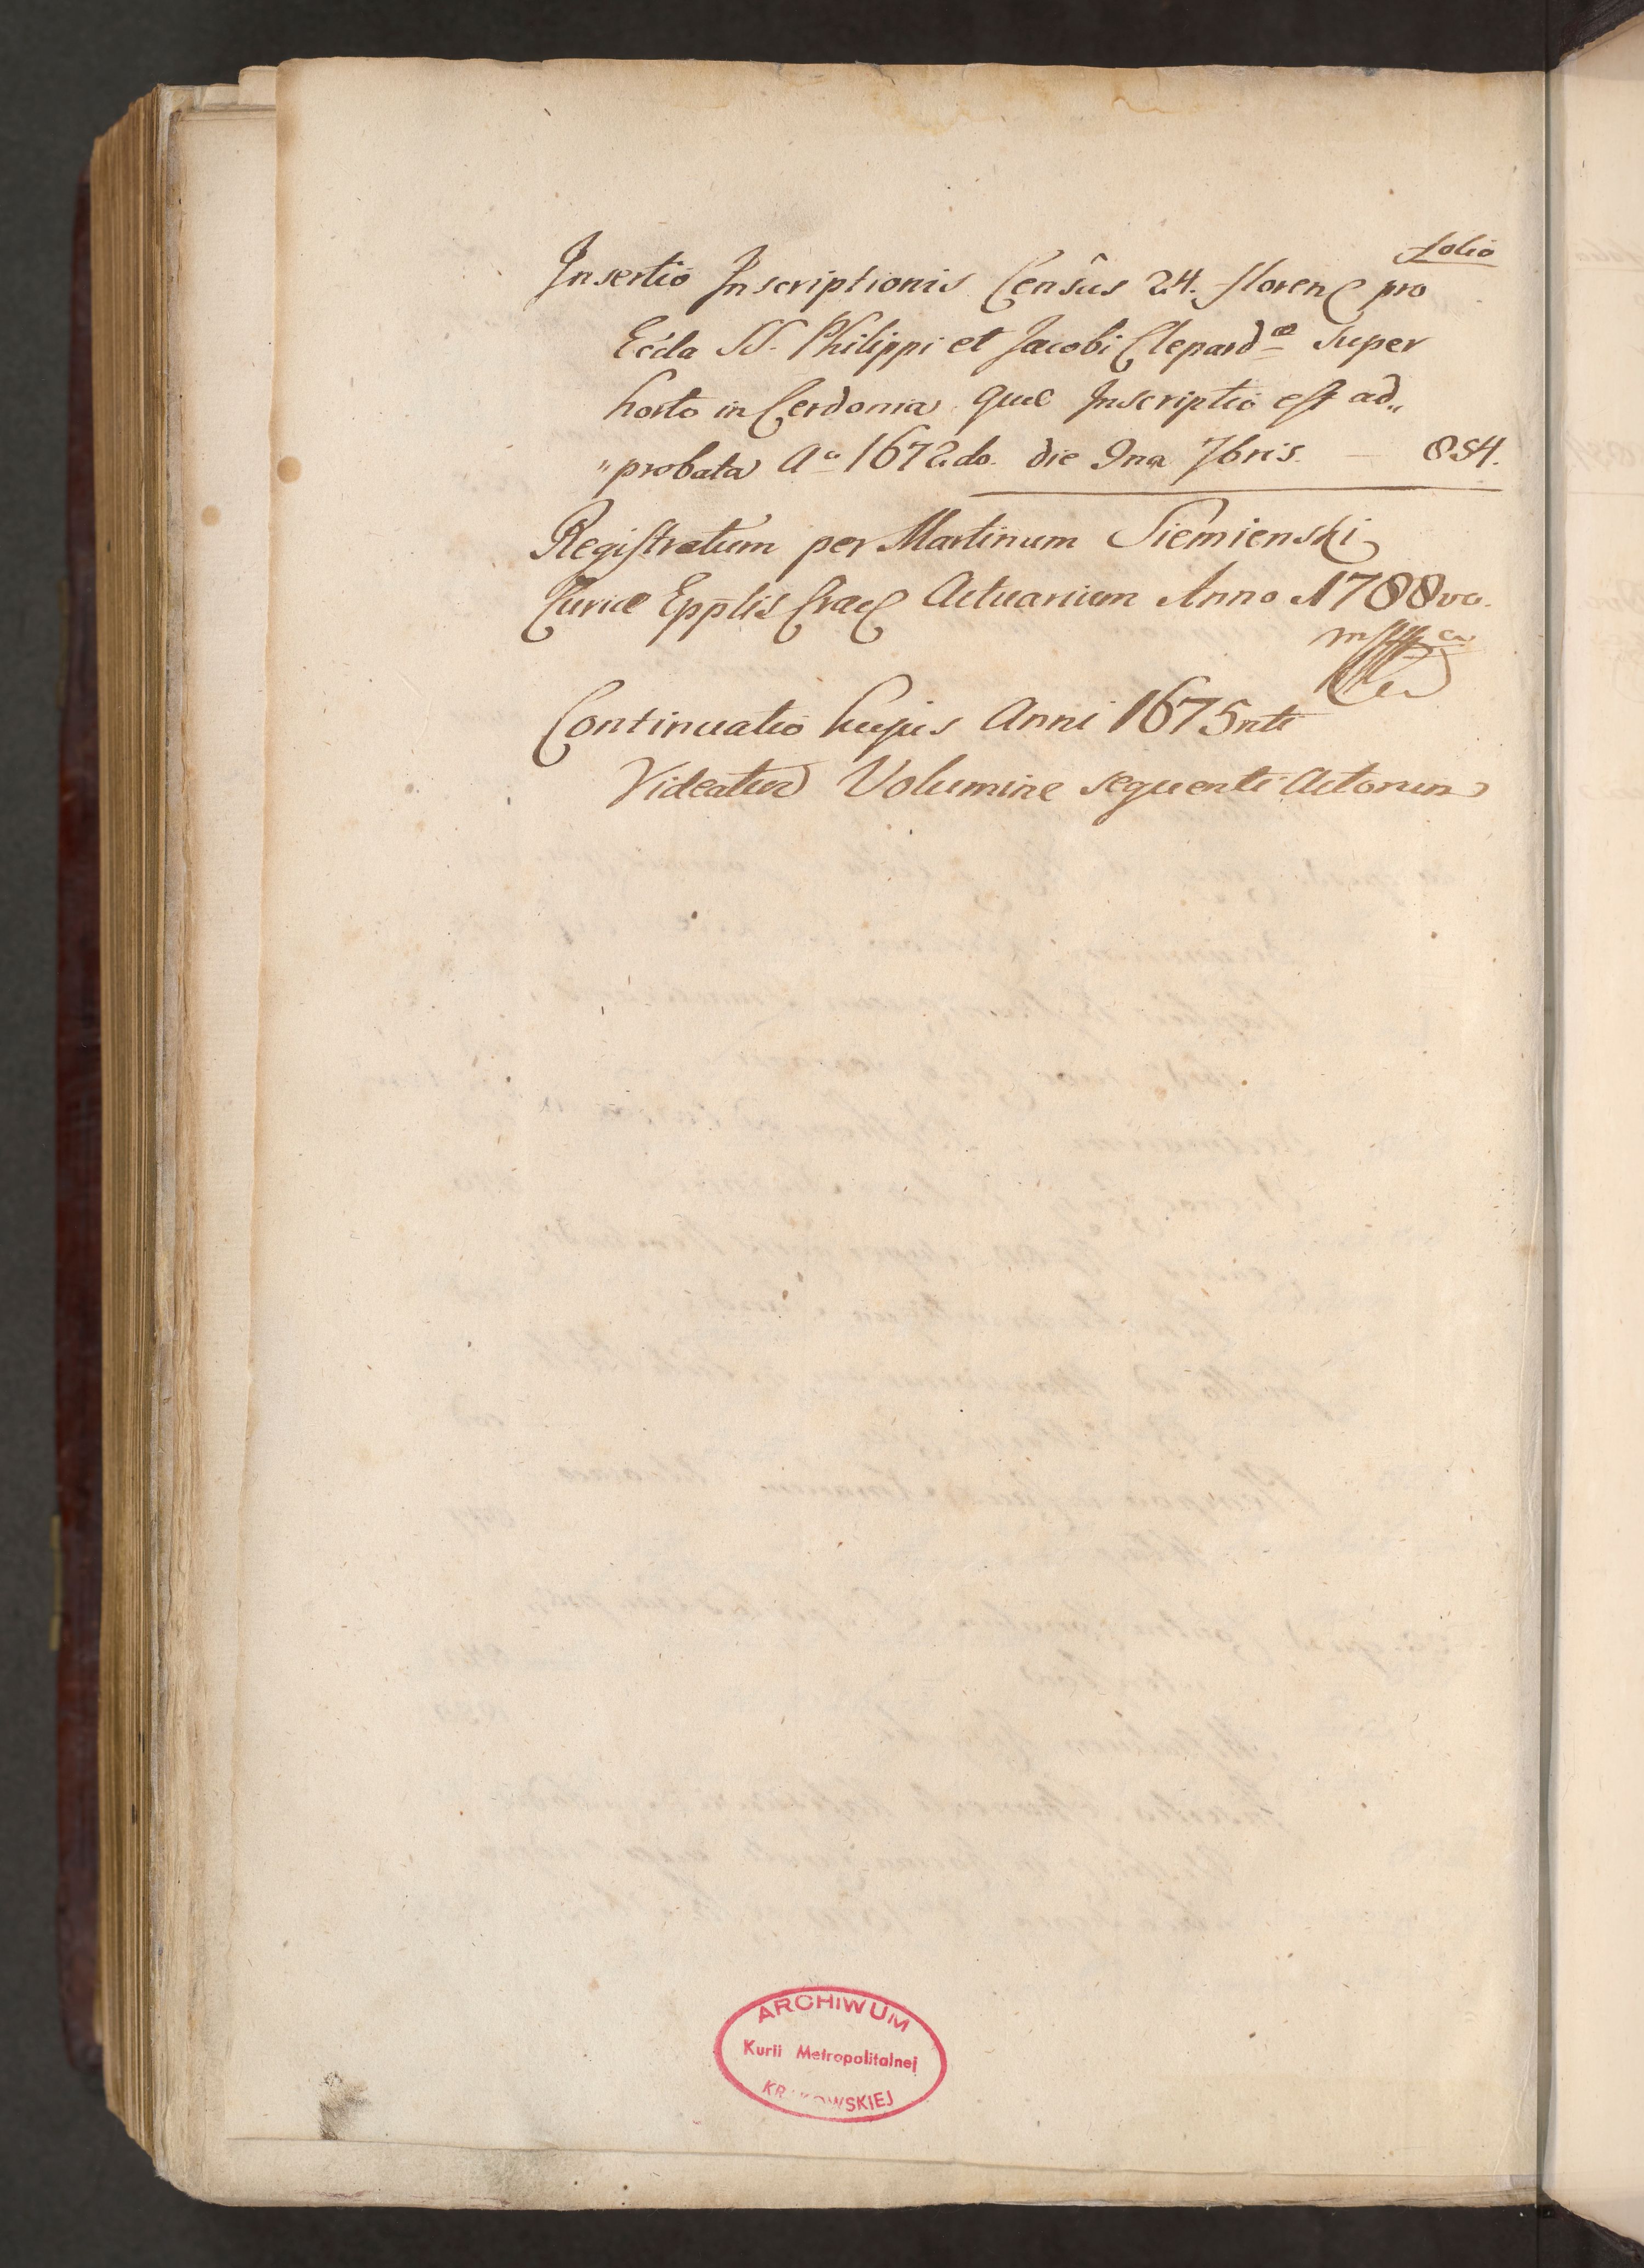 folio
Insertio Inscriptionis Censûs 24. floren pro
Eccla SS. Philippi et Jacobi Clepardæ super
horto in Cerdonia quæ Inscriptio est ad„
„probata Ao 1672do. die 9na 7bris. — 854.
Registratum per Martinum Siemienski
Curiæ Epplis Crac Actuarium Anno 1788vo.
Continuatio hujus Anni 1675nti
Videatur Volumine sequenti Actorum
ARCHIWUM
Kurii Metropolitalnej
KRAKOWSKIEJ